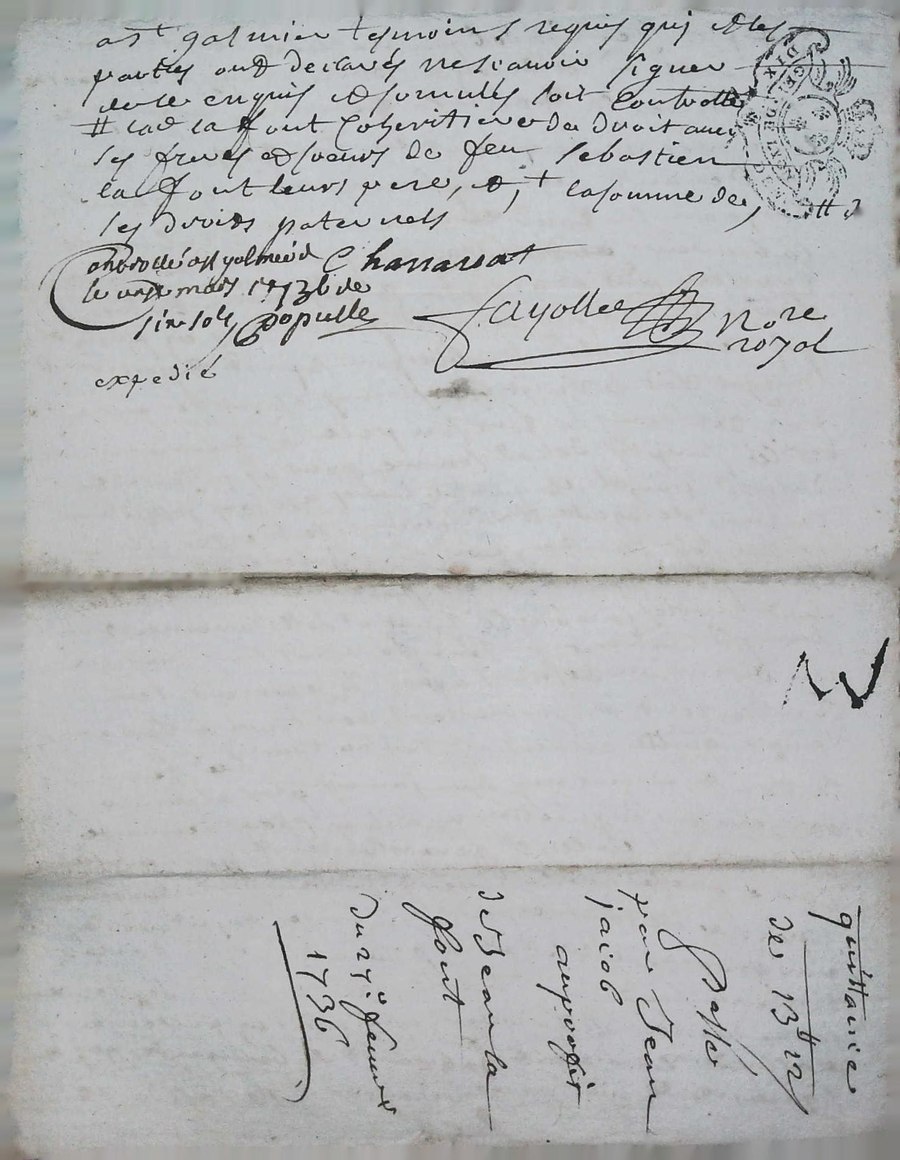 a st galmier tesmoins requis qui et les
parties ont declarés nescavoir signer
de ce enquis et sommés soit controllé
# lad la font Coheritiere de droit avec
ses freres et soeurs de feu sebastien
la font leurs pere, et, + la somme de,
ses droits paternels
Controllé a st galmier Chanavat
le mars 1736 de
six sols Populle
fayolle No.re
royal
expedié
quittance
de 13 #
Passée
par Jean
jacob
au proffit
de Jean la
font
du 27.e fevrier
1736